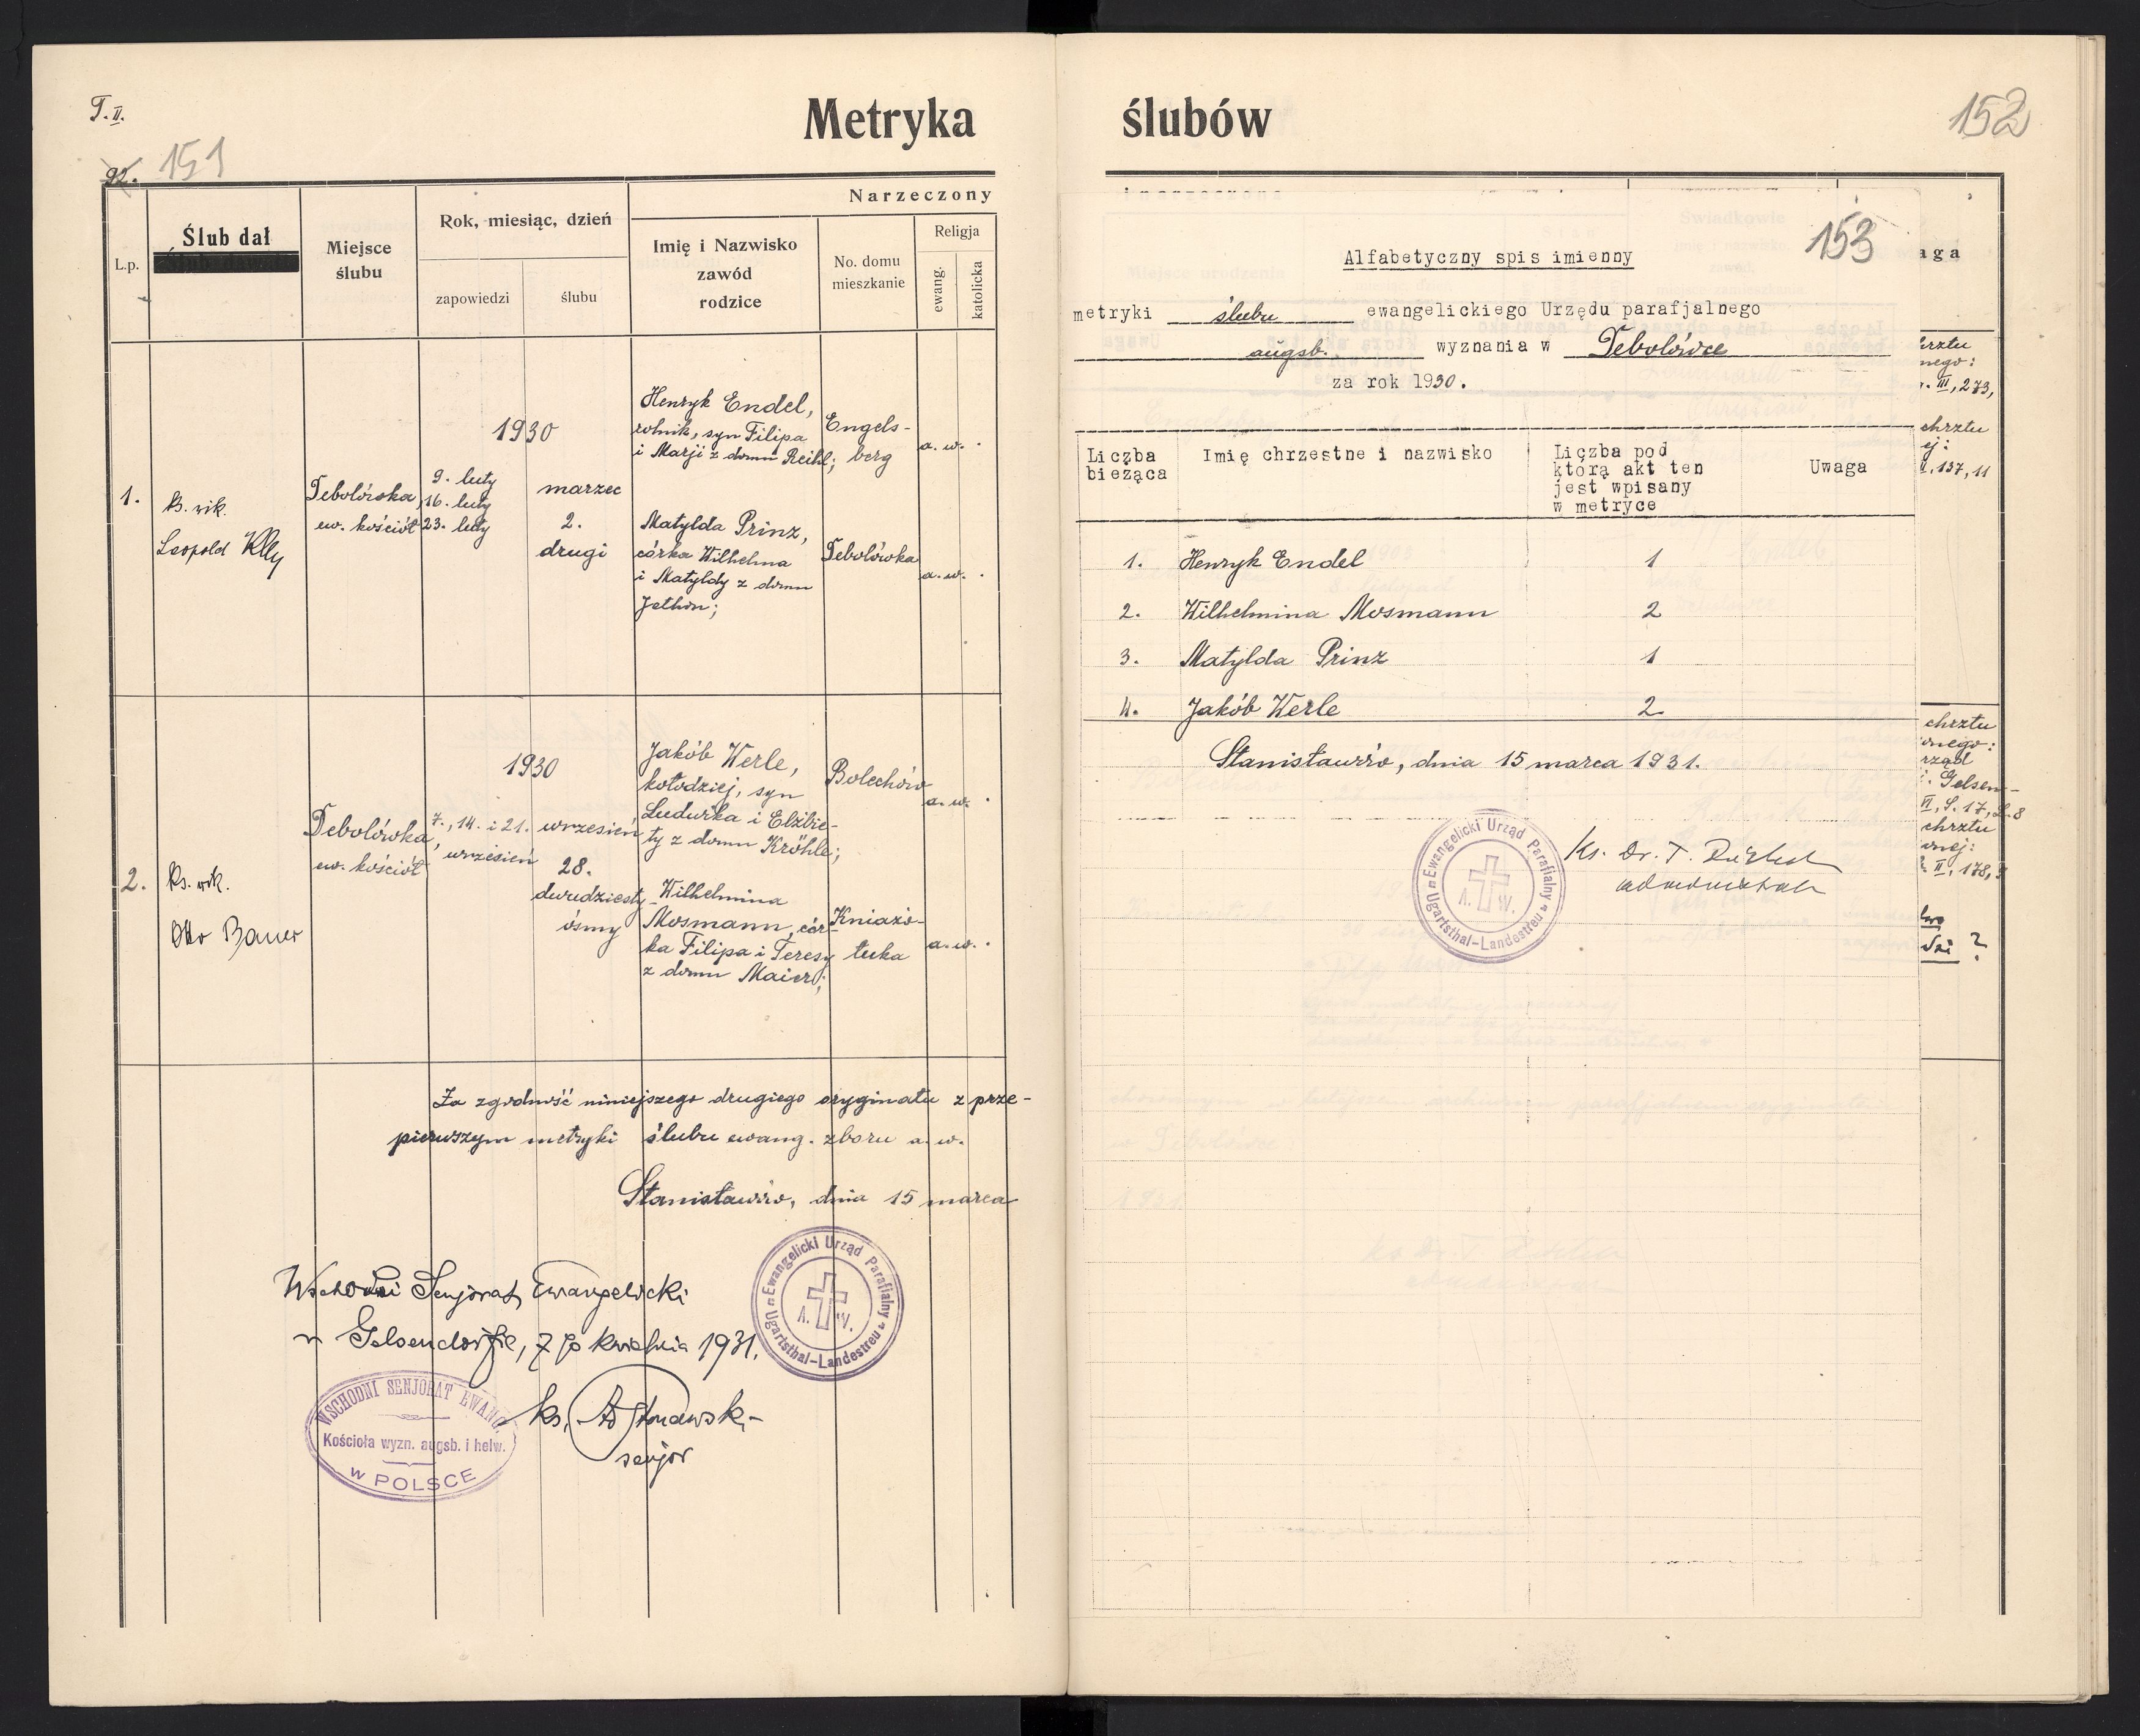 T. II.
Metryka
92. 151
Narzeczony
L.p.
Ślub dał
Miejsce
ślubu
Rok, miesiąc, dzień
zapowiedzi
ślubu
Imię i Nazwisko
zawód
rodzice
No. domu
mieszkanie
Religja
ewang.
katolicka
1.
ks. wik.
Leopold
Debolówka,
ew. kościół
1930
9. luty
16. luty
23. luty
marzec
2.
drugi
Henryk Endel,
rolnik, syn Filipa
i Marji z domu Reihl;
Engels-
berg
a. w.
Matylda Prinz,
córka Wilhelma
i Matyldy z domu
Jethon;
Debolówka
a. w.
2.
ks. wik.
Otto Bauer
Debolówka,
ew. kościół
1930
7., 14. i 21.
wrzesień
wrzesień
28.
dwudziesty
ósmy
Jakób Werle,
kołodziej, syn
Ludwika i Elżbie-
ty z domu Kröhle;
Bolechów
a. w.
Wilhelmina
Mosmann, cór-
ka Filipa i Teresy
z domu Maier;
Kniazio-
łuka
a. w.
Za zgodność niniejszego drugiego oryginału z prze-
pierwszym metryki ślubu ewang. zboru a. w.
Stanisławów, dnia 15 marca
Ewangelicki Urząd Parafialny
A. W.
Ugartsthal-Landestreu
Wschodni Senjorat Ewangelicki
w Gelsendorfie, 7 go kwietnia 1931.
WSCHODNI SENJORAT EWANG.
Kościoła wyzn. augsb. i helw.
w POLSCE
ks.
senjor
ślubów
152
153
Alfabetyczny spis imienny
metryki ślubu ewangelickiego Urzędu parafjalnego
augsb. wyznania w Debolówce
za rok 1930.
Liczba
bieżąca
Imię chrzestne i nazwisko
Liczba pod
którą akt ten
jest wpisany
w metryce
Uwaga
1. Henryk Endel 1
2. Wilhelmina Mosmann 2
3. Matylda Prinz 1
4. Jakób Werle 2
Stanisławów, dnia 15 marca 1931.
Ewangelicki Urząd Parafialny
A. W.
Ugartsthal-Landestreu
ks. Dr. T.
administrator
aga
chrztu
nego:
III, 273,
chrztu
ej:
137, 11
chrztu
nego:
rząd
Gelsen-
VI, S. 17, L. 8
chrztu
nej:
II, 178,
?